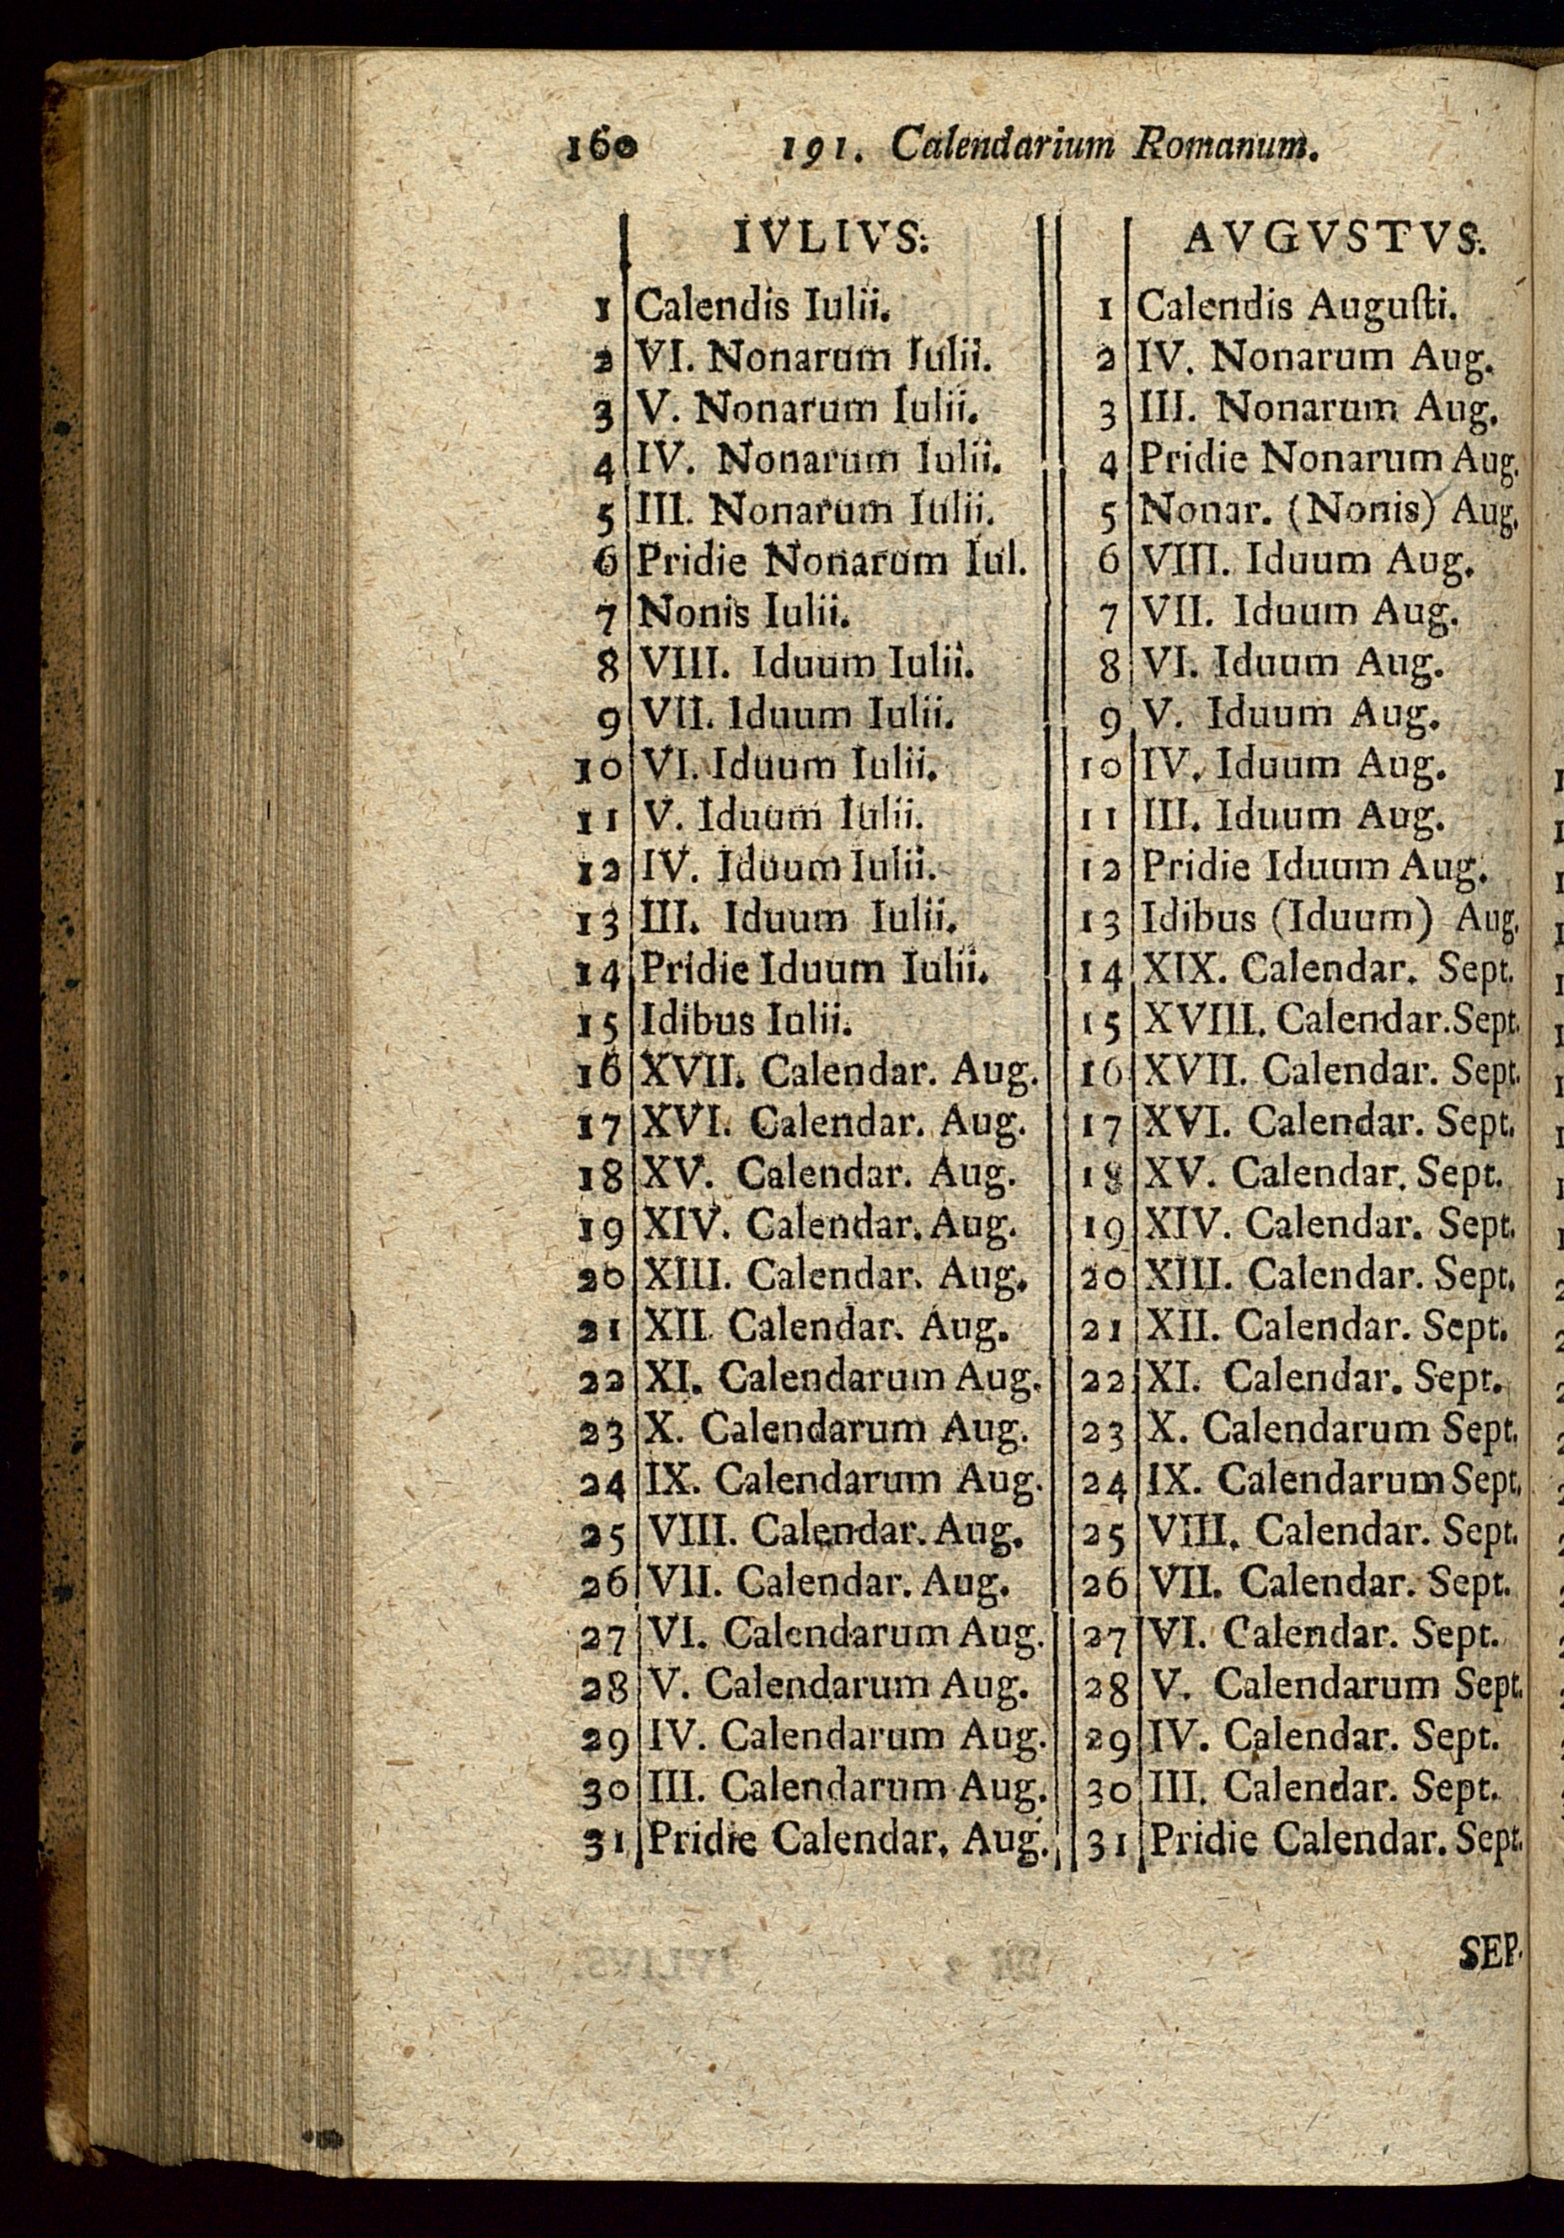 160 191. Calendarium Romanum.
IVLIVS.
1 Calendis Iulii.
2 VI. Nonarum Iulii.
3 V. Nonarum Iulii.
4 IV. Nonarum Iulii.
5 III. Nonarum Iulii.
6 Pridie Nonarum Iul.
7 Nonis Iulii.
8 VIII. Iduum Iulii.
9 VII. Iduum Iulii.
10 VI. Iduum Iulii.
11 V. Iduum Iulii.
12 IV. Iduum Iulii.
13 III. Iduum Iulii.
14 Pridie Iduum Iulii.
15 Idibus Iulii.
16 XVII. Calendar. Aug.
17 XVI. Calendar. Aug.
18 XV. Calendar. Aug.
19 XIV. Calendar. Aug.
20 XIII. Calendar. Aug.
21 XII. Calendar. Aug.
22 XI. Calendarum Aug.
23 X. Calendarum Aug.
24 IX. Calendarum Aug.
25 VIII. Calendar. Aug.
26 VII. Calendar. Aug.
27 VI. Calendarum Aug.
28 V. Calendarum Aug.
29 IV. Calendarum Aug.
30 III. Calendarum Aug.
31 Pridie Calendar. Aug.
AVGVSTVS.
1 Calendis Augusti.
2 IV. Nonarum Aug.
3 III. Nonarum Aug.
4 Pridie Nonarum Aug.
5 Nonar. (Nonis) Aug.
6 VIII. Iduum Aug.
7 VII. Iduum Aug.
8 VI. Iduum Aug.
9 V. Iduum Aug.
10 IV. Iduum Aug.
11 III. Iduum Aug.
12 Pridie Iduum Aug.
13 Idibus (Iduum) Aug.
14 XIX. Calendar. Sept.
15 XVIII. Calendar. Sept.
16 XVII. Calendar. Sept.
17 XVI. Calendar. Sept.
18 XV. Calendar. Sept.
19 XIV. Calendar. Sept.
20 XIII. Calendar. Sept.
21 XII. Calendar. Sept.
22 XI. Calendar. Sept.
23 X. Calendarum Sept.
24 IX. Calendarum Sept.
25 VIII. Calendar. Sept.
26 VII. Calendar. Sept.
27 VI. Calendar. Sept.
28 V. Calendarum Sept.
29 IV. Calendar. Sept.
30 III. Calendar. Sept.
31 Pridie Calendar. Sept.
SEP.